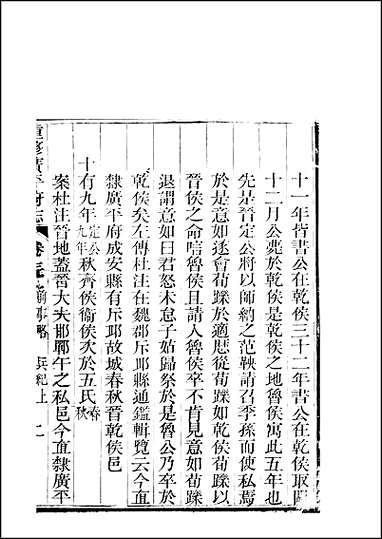 十一年皆書公在乾侯三十二年書公在乾侯取闞
十二月公薨於乾侯是乾侯之地魯侯寓此五年也
先是晉定公將以師納之范鞅請召季孫而使私焉
於是意如送會荀躒於適歷從荀躒如乾侯荀躒以
晉侯之命唁魯侯且請入魯侯卒不肯見意如荀躒
退謂意如曰君怒未怠子姑歸祭於是魯公乃卒於
乾侯矣左傳杜注在魏郡斥邱縣通鑑輯覽云今直
隸廣平府成安縣有斥邱故城春秋晉乾侯邑
十有九年定公九年秋齊侯衛侯次於五氏春秋
案杜注晉地蓋晉大夫邯鄲午之私邑今直隸廣平
重修廣平府志 卷 前事略 兵紀上 二